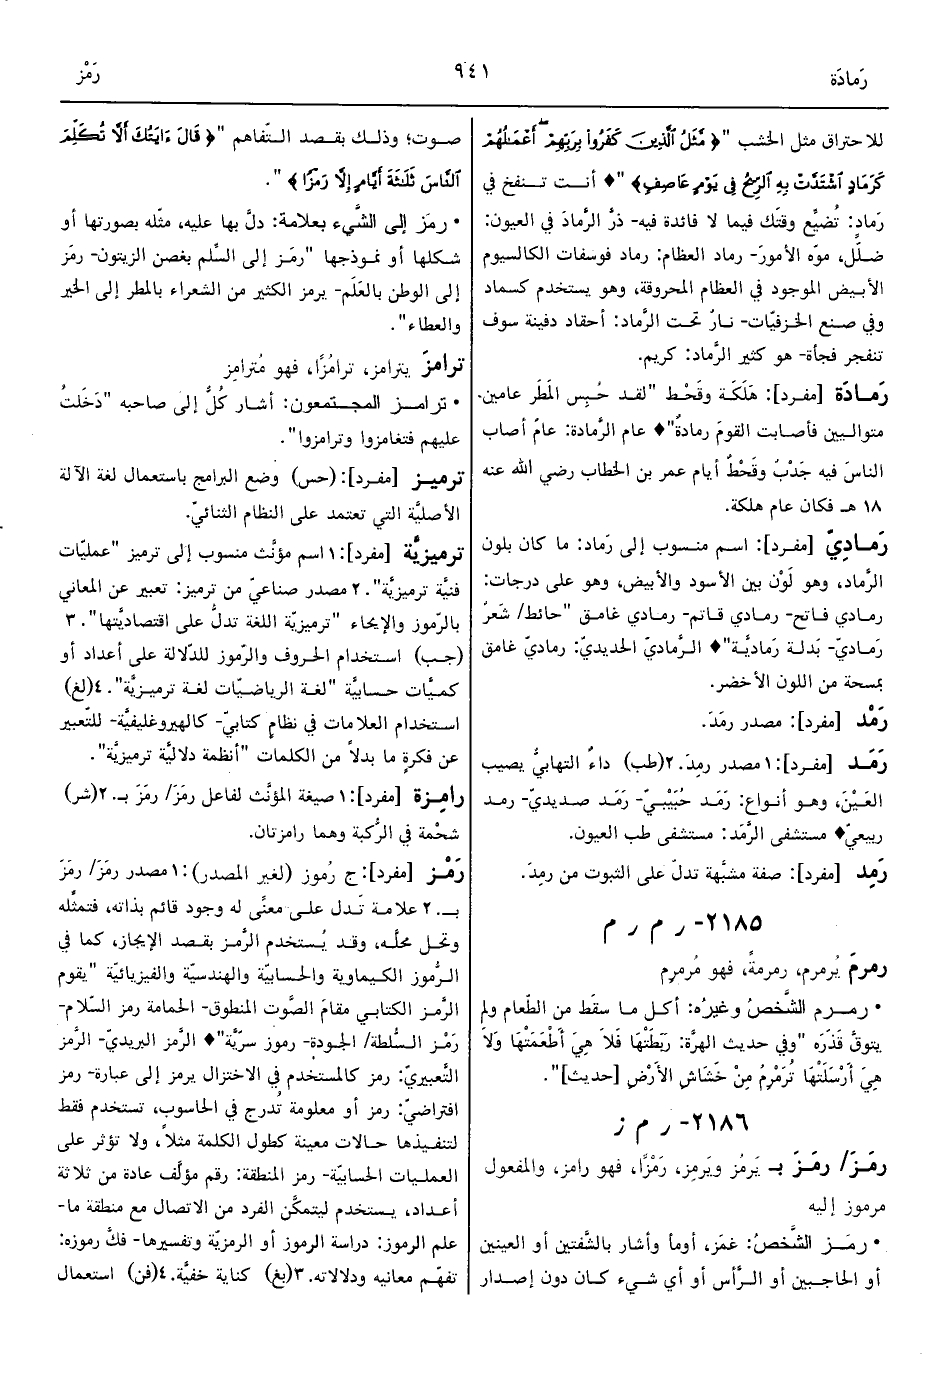 رَمادَة
٩٤١
رَمْز
للاحتراق مثل الخشب "﴿ مَّثَلُ ٱلَّذِينَ كَفَرُواْ بِرَبِّهِمۡۖ أَعۡمَٰلُهُمۡ
كَرَمَادٍ ٱشۡتَدَّتۡ بِهِ ٱلرِّيحُ فِي يَوۡمٍ عَاصِفٖ﴾ "♦ أنت تنفخ في
رَمادٍ: تُضيِّع وقتَك فيما لا فائدة فيه- ذرُّ الرَّمادَ في العيون:
ضلّل، موّه الأمورَ- رماد العظام: رماد فوسفات الكالسيوم
الأبيض الموجود في العظام المحروقة، وهو يستخدم كسماد
وفي صنع الخزفيّات- نارٌ تحت الرَّماد: أحقاد دفينة سوف
تنفجر فجأة- هو كثير الرَّماد: كريم.
رَمادَة [مفرد]: هَلَكَة وقَحْط "لقد حُبِس المَطَر عامين.
متواليين فأصابت القومَ رمادةٌ"♦ عام الرَّمادة: عامٌ أصاب
الناسَ فيه جَدْبٌ وقَحْطٌ أيام عمر بن الخطاب رضي الله عنه
١٨ هـ فكان عام هلكة.
رَماديّ [مفرد]: اسم منسوب إلى رَماد: ما كان بلون
الرَّماد، وهو لَوْن بين الأسود والأبيض، وهو على درجات:
رمادي فاتح- رمادي قاتم- رمادي غامق "حائط/ شَعرٌ
رَماديّ- بَدلة رَماديَّة"♦ الرَّماديّ الحديديّ: رماديّ غامق
بمسحة من اللون الأخضر.
رَمْد [مفرد]: مصدر رمَدَ.
رَمَد [مفرد]: ١ مصدر رمِدَ. ٢(طب) داءٌ التهابيٌّ يصيب
العَيْنَ، وهو أنواع: رَمَد حُبَيْبيّ- رَمَد صديديّ- رمد
ربيعيّ♦ مستشفى الرَّمَد: مستشفى طب العيون.
رَمِد [مفرد]: صفة مشبَّهة تدلّ على الثبوت من رمِدَ.
٢١٨٥- ر م ر م
رمرمَ يُرمرم، رمرمةً، فهو مُرمرِم
• رمرم الشَّخصُ وغيرُه: أكل ما سقَط من الطّعام ولم
يتوقَّ قَذَرَه "وفي حديث الهِرَّة: رَبَطَتْهَا فَلاَ هِيَ أَطْعَمَتْهَا وَلاَ
هِيَ أَرْسَلَتْهَا تُرَمْرِمُ مِنْ خَشَاشِ الأَرْضِ [حديث]".
٢١٨٦- ر م ز
رمَزَ/ رمَزَ بـ يَرمُز ويَرمِز، رَمْزًا، فهو رامز، والمفعول
مرموز إليه
• رمَز الشَّخصُ: غمَز، أومأ وأشار بالشَّفتين أو العينين
أو الحاجبين أو الرَّأس أو أي شيء كان دون إصدار
صوت؛ وذلك بقصد التّفاهم "﴿ قَالَ ءَايَتُكَ أَلَّا تُكَلِّمَ
ٱلنَّاسَ ثَلَٰثَةَ أَيَّامٍ إِلَّا رَمۡزٗا ﴾ ".
• رمَز إلى الشَّيء بعلامة: دلّ بها عليه، مثّله بصورتها أو
شكلها أو نموذجها "رمَز إلى السِّلم بغصن الزيتون- رمَز
إلى الوطن بالعَلَم- يرمز الكثير من الشعراء بالمطر إلى الخير
والعطاء".
ترامزَ يترامز، ترامُزًا، فهو مُترامِز
• ترامز المجتمعون: أشار كُلٌّ إلى صاحبه "دَخَلتُ
عليهم فتغامزوا وترامزوا".
ترميز [مفرد]: (حس) وضع البرامج باستعمال لغة الآلة
الأصليَّة التي تعتمد على النظام الثنائيّ.
ترميزيَّة [مفرد]: ١ اسم مؤنَّث منسوب إلى ترميز "عمليّات
فنيَّة ترميزيَّة". ٢ مصدر صناعيّ من ترميز: تعبير عن المعاني
بالرّموز والإيحاء "ترميزيّة اللغة تدلُّ على اقتصاديَّتها". ٣
(جب) استخدام الحروف والرّموز للدّلالة على أعداد أو
كميَّات حسابيَّة "لغة الرياضيّات لغة ترميزيَّة". ٤(لغ)
استخدام العلامات في نظامٍ كتابيّ- كالهيروغليفيَّة- للتّعبير
عن فكرةٍ ما بدلاً من الكلمات "أنظمة دلاليَّة ترميزيَّة".
رامِزة [مفرد]: ١ صيغة المؤنَّث لفاعل رمَزَ/ رمَزَ بـ. ٢(شر)
شحْمة في الرُّكبة وهما رامزتان.
رَمْز [مفرد]: ج رُموز (لغير المصدر): ١ مصدر رمَزَ/ رمَزَ
بـ. ٢ علامة تَدل على معنًى له وجود قائم بذاته، فتمثّله
وتحل محلّه، وقد يُستخدم الرَّمز بقصد الإيجاز، كما في
الرُّموز الكيماوية والحسابيَّة والهندسيَّة والفيزيائيَّة "يقوم
الرَّمز الكتابي مقامَ الصَّوت المنطوق- الحمامة رمز السَّلام-
رَمْز السُّلطة/ الجودة- رموز سرِّيَّة"♦ الرَّمز البريديّ- الرَّمز
التَّعبيريّ: رمز كالمستخدم في الاختزال يرمز إلى عبارة- رمز
افتراضيّ: رمز أو معلومة تُدرج في الحاسوب، تستخدم فقط
لتنفيذها حالات معينة كطول الكلمة مثلاً، ولا تؤثر على
العمليات الحسابيَّة- رمز المنطقة: رقم مؤلَّف عادة من ثلاثة
أعداد، يستخدم ليتمكَّن الفرد من الاتصال مع منطقة ما-
علم الرموز: دراسة الرموز أو الرمزيّة وتفسيرها- فكُّ رموزه:
تفهّم معانيه ودلالاته. ٣(بغ) كناية خفيَّة. ٤(فن) استعمال